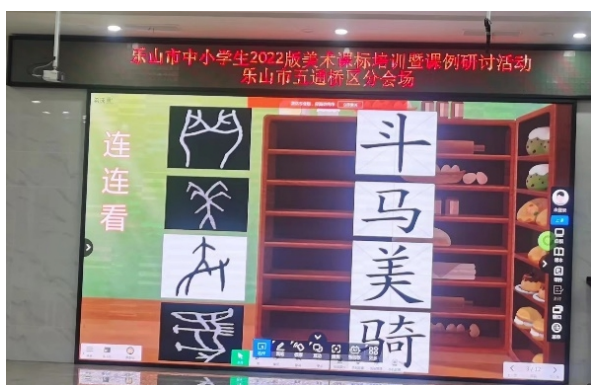 乐山市中小学生2022版美术课标培训暨课例研讨活动
乐山市五通桥区分会场
连连看
斗
马
美
骑